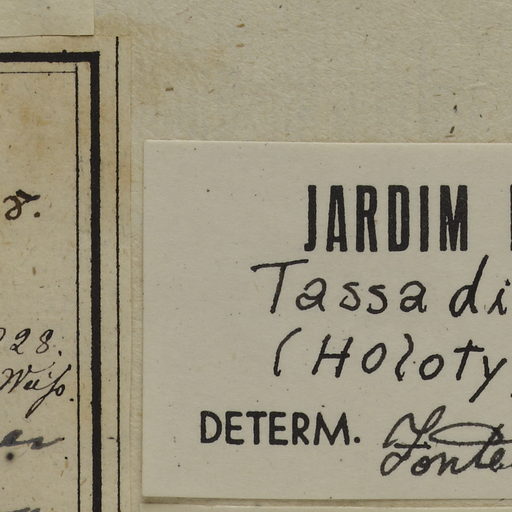 8.
28.
Weiss.
JARDIM
Tassadi
(Holoty
DETERM. Fonte